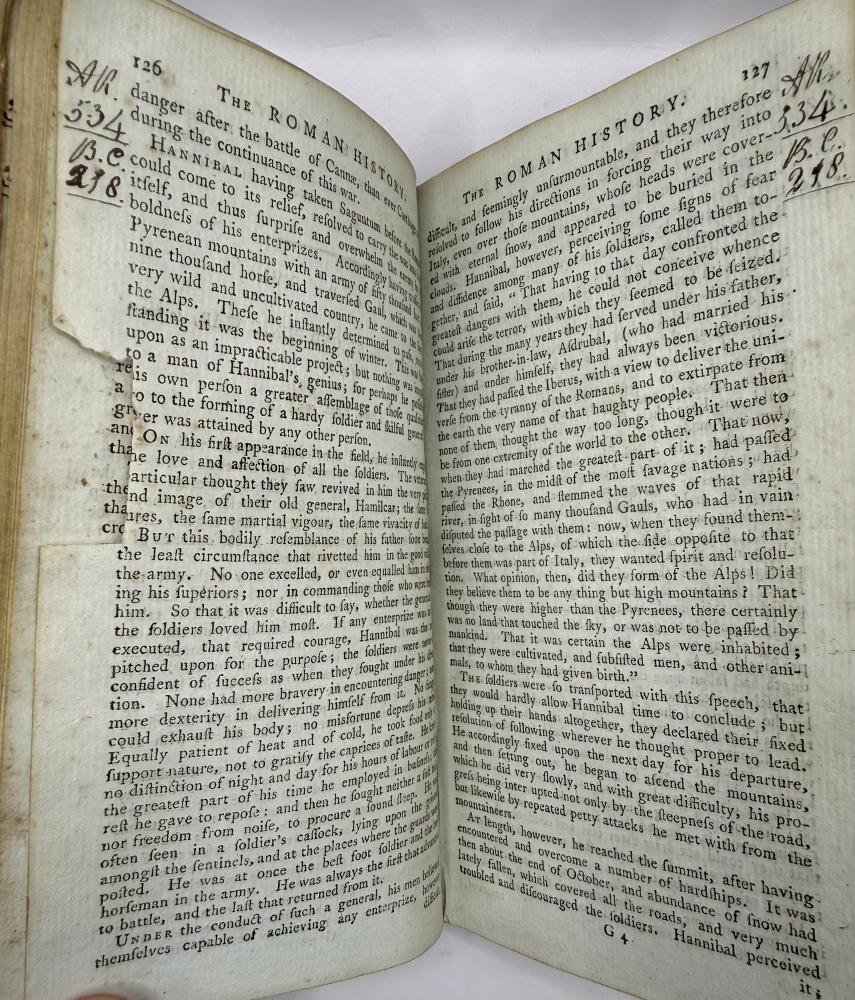 126
THE ROMAN HISTORY.
AR.
534
B.C.
218.
danger after the battle of Cannæ, than ever
during the continuance of this war.
HANNIBAL having taken Saguntum before the
could come to its relief, resolved to carry the war
itself, and thus surprise and overwhelm the enemy
boldness of his enterprizes. Accordingly having
Pyrenean mountains with an army of fifty thousand
nine thousand horse, and traversed Gaul, which was
very wild and uncultivated country, he came to the
the Alps. These he instantly determined to pass,
standing it was the beginning of winter. This
upon as an impracticable project; but nothing was
to a man of Hannibal's genius; for perhaps he
re
his own person a greater assemblage of those
a
to the forming of a hardy soldier and skilful general
gr
ver was attained by any other person.
and
ON his first appearance in the field, he instantly
tha
he love and affection of all the soldiers. The
articular thought they saw revived in him the very
the
nd image of their old general, Hamilcar; the same
tha
ures, the same martial vigour, the same vivacity of
cro
BUT this bodily resemblance of his father soon
the least circumstance that rivetted him in the good
the army. No one excelled, or even equalled him in
ing his superiors; nor in commanding those who were
him. So that it was difficult to say, whether the general
the soldiers loved him most. If any enterprize was
executed, that required courage, Hannibal was the
pitched upon for the purpose; the soldiers were never
confident of success as when they fought under his
tion. None had more bravery in encountering danger;
more dexterity in delivering himself from it. No
could exhaust his body; no misfortune depress his
Equally patient of heat and of cold, he took food only
support nature, not to gratify the caprices of taste. He
no distinction of night and day for his hours of labour or
the greatest part of his time he employed in business,
rest he gave to repose: and then he sought neither a soft
nor freedom from noise, to procure a sound sleep. He
often seen in a soldier's cassock, lying upon the
amongst the sentinels, and at the places where the guards
posted. He was at once the best foot soldier and the
horseman in the army. He was always the first that advanced
to battle, and the last that returned from it.
UNDER the conduct of such a general, his men believed
themselves capable of achieving any enterprize, however
difficult,
127
THE ROMAN HISTORY.
AR.
534.
B.C.
218.
difficult, and seemingly unsurmountable, and they therefore
resolved to follow his directions in forcing their way into
Italy, even over those mountains, whose heads were cover-
ed with eternal snow, and appeared to be buried in the
clouds. Hannibal, however, perceiving some signs of fear
and diffidence among many of his soldiers, called them to-
gether, and said, "That having to that day confronted the
greatest dangers with them, he could not conceive whence
could arise the terror, with which they seemed to be seized.
That during the many years they had served under his father,
under his brother-in-law, Asdrubal, (who had married his
sister) and under himself, they had always been victorious.
That they had passed the Iberus, with a view to deliver the uni-
verse from the tyranny of the Romans, and to extirpate from
the earth the very name of that haughty people. That then
none of them thought the way too long, though it were to
be from one extremity of the world to the other. That now,
when they had marched the greatest part of it; had passed
the Pyrenees, in the midst of the most savage nations; had
passed the Rhone, and stemmed the waves of that rapid
river, in sight of so many thousand Gauls, who had in vain
disputed the passage with them: now, when they found them-
selves close to the Alps, of which the side opposite to that
before them was part of Italy, they wanted spirit and resolu-
tion. What opinion, then, did they form of the Alps! Did
they believe them to be any thing but high mountains? That
though they were higher than the Pyrenees, there certainly
was no land that touched the sky, or was not to be passed by
mankind. That it was certain the Alps were inhabited;
that they were cultivated, and subsisted men, and other ani-
mals, to whom they had given birth."
THE soldiers were so transported with this speech, that
they would hardly allow Hannibal time to conclude; but
holding up their hands altogether, they declared their fixed
resolution of following wherever he thought proper to lead.
He accordingly fixed upon the next day for his departure,
and then setting out, he began to ascend the mountains,
which he did very slowly, and with great difficulty, his pro-
gress being inter upted not only by the steepness of the road,
but likewise by repeated petty attacks he met with from the
mountaineers.
At length, however, he reached the summit, after having
encountered and overcome a number of hardships. It was
then about the end of October, and abundance of snow had
lately fallen, which covered all the roads, and very much
troubled and discouraged the soldiers. Hannibal perceived
G 4
it;